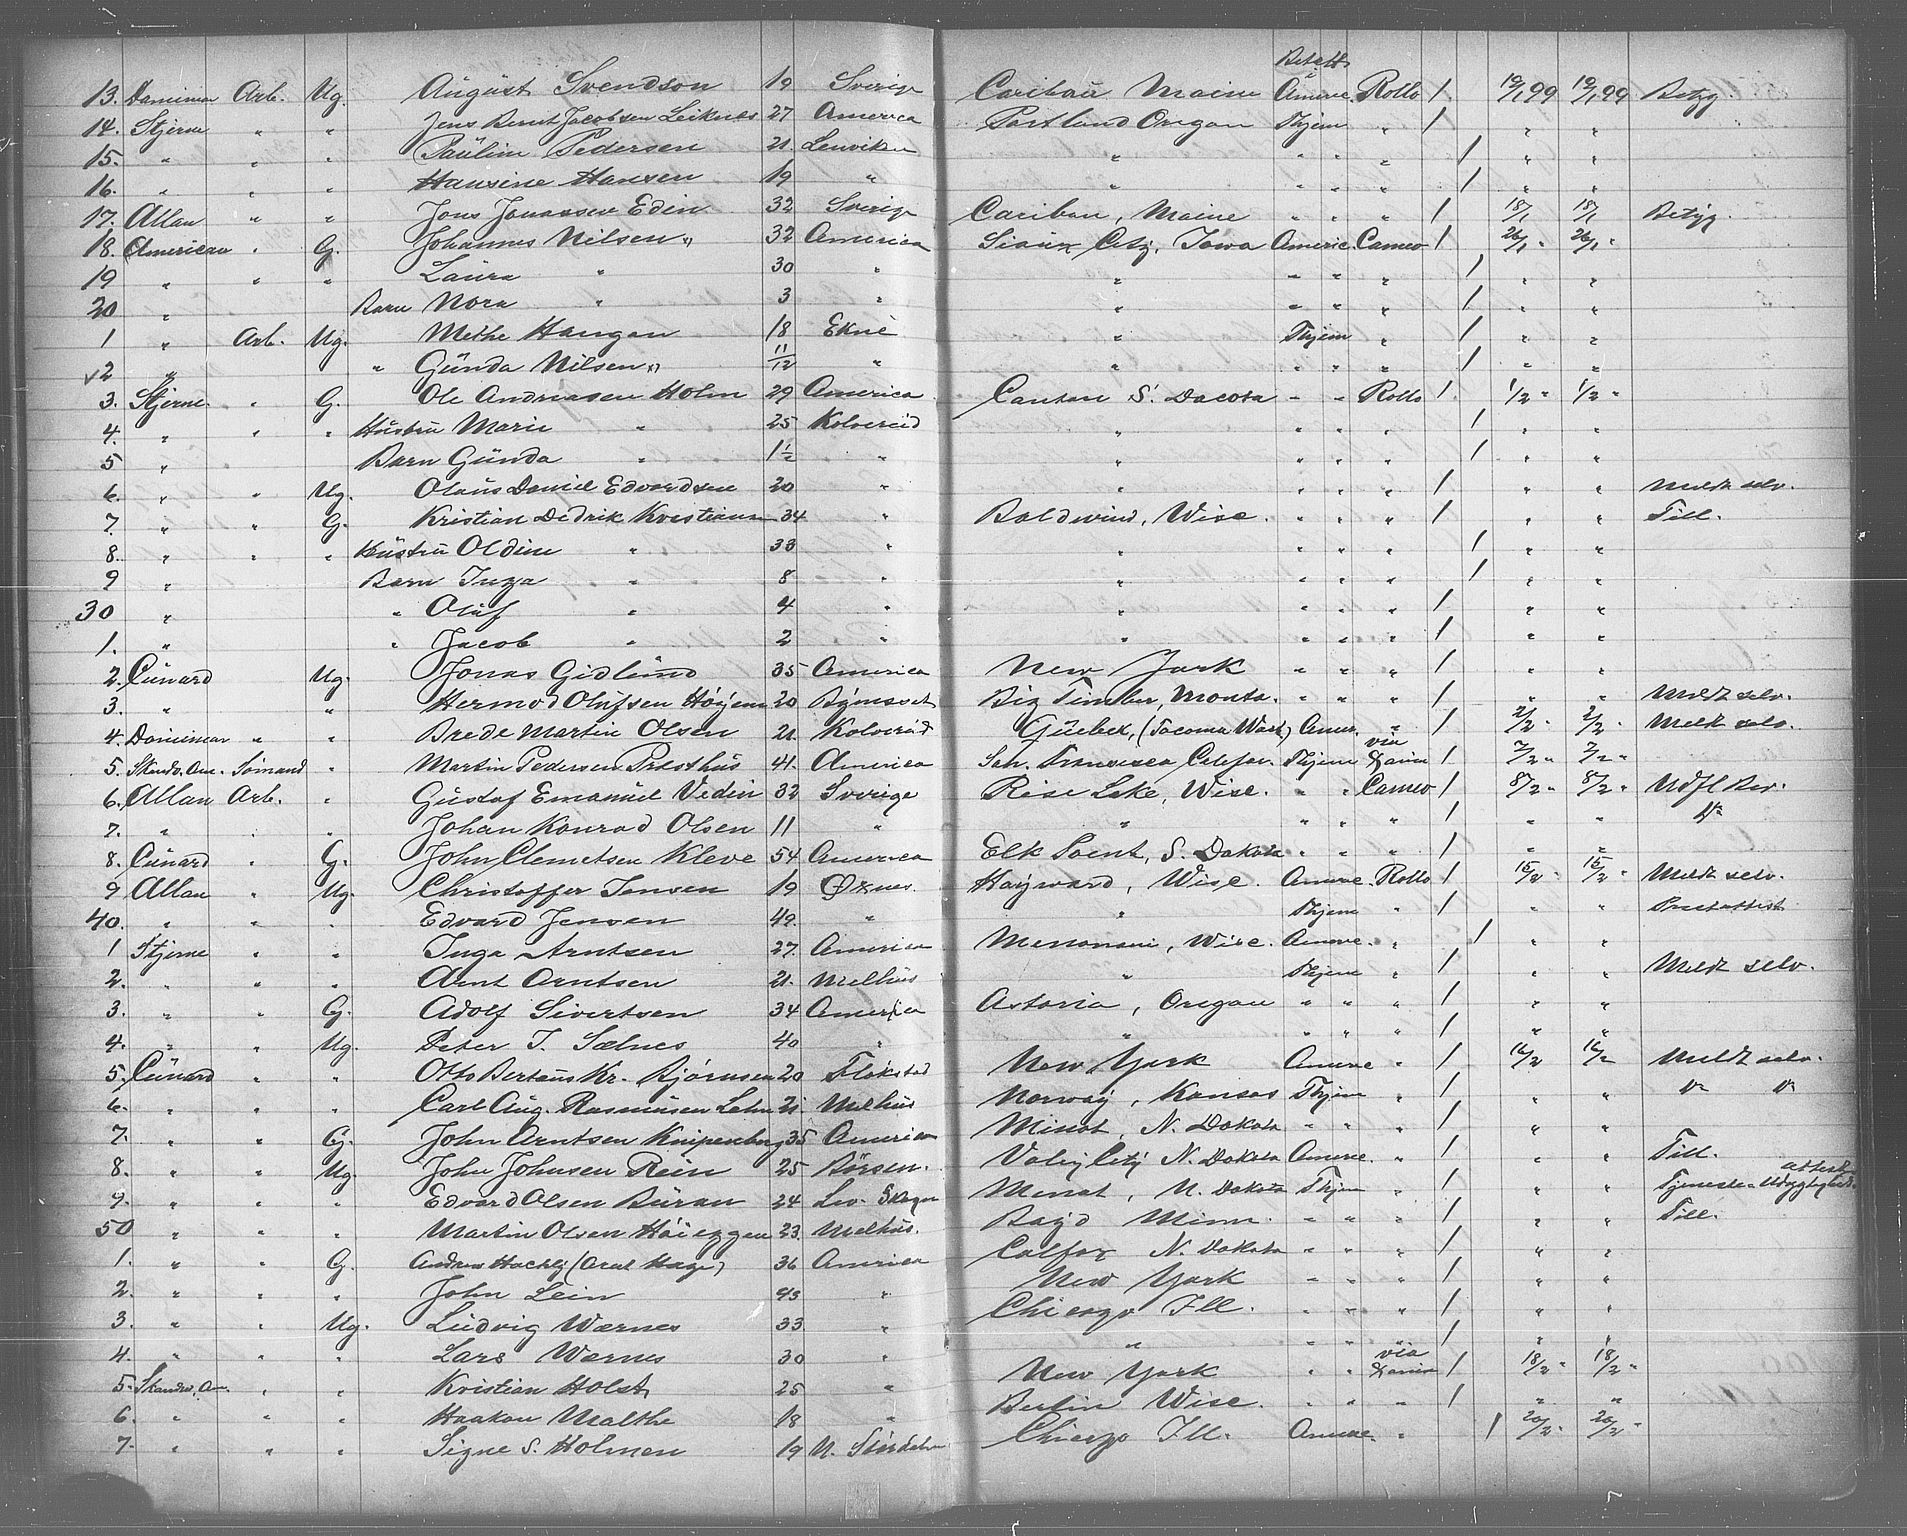 Betalt
13. Dominion Arb. Ug. August Svendson 19 Sverige Caribau Maine Amere. Rollo / 19/1 99 19/1 99 Betyg.
14. Stjerne " " Jens Bernt Jacobsen Leiknes 27 America Portland Oregon Thjem " / " "
15. " " " Pauline Pedersen 21 Lenviken " " " " / " "
16. " " " Hansine Hansen 19 " " " " " / " "
17. Allan " " Jons Jonassen Edin 32 Sverige Caribau, Maine " " " / 18/1 18/1 Betyg.
18. American " G. Johannes Nilsen " 32 America Sioux City, Iowa Americ. Cameo / 26/1 " 26/1 "
19 " " " Laura " 30 " " " " " / " "
20 " Barn Nora " 3 " " " " " / " "
1 " Arb. Ug. Methe Haugan 18 Ekne " Thjem " / " "
2 " " Gunda Nilsen " 11/12 " " " " " / " "
3. Stjerne " G. Ole Andreasen Holm 29 America Canton S. Dacota " " Rollo / 1/2 " 1/2 "
4. " " " Hustru Marie " 25 Kolvereid " " " " / " "
5 " Barn Gunda " 1½ " " " " " / " "
6. " " Ug. Olaus Daniel Edvardsen 20 " " " " " / " " Meldt selv.
7. " " G. Kristian Dedrik Kvistiansen 34 " Baldwind, Wisc. " " " / " " Till.
8. " " " Hustru Oldine " 33 " " " " " / " "
9 " Barn Inga " 8 " " " " " / " "
30 " " Oluf " 4 " " " " " / " "
1. " " Jacob " 2 " " " " " / " "
2. Cunard Ug. Jonas Gidlund 35 America New York " " " / " "
3. " " Hermod Olufsen Høyem 20 Bynesset Big Timber, Monta. " " " / " " Meldt selv.
4. Dominion " " Brede Martin Olsen 21 Kolvereid Guebek, (Tacoma Wash) Amer. " / 2/2 " 2/2 " Meldt selv.
5. Skandv. Am. Sømand " Martin Pedersen Præsthus 41. America San. Francisco Califor. Thjem via / 7/2 " 7/2 "
6. Allan Arb. " Gustaf Emanuel Vedin 32 Sverige Rise Lake, Wisc. " " Cameo / 8/2 " 8/2 " Udfl Bev.
7. " " " Johan Konrad Olsen 11 " " " " " / " " do
8. Cunard " G. John Clemetsen Kleve 54 America Elk Point, S. Dakota " " " / " "
9 Allan " Ug. Christoffer Jensen 19 Øxnes. Hayward, Wisc. Amere. Rollo / 15/2 " 15/2 " Meldt selv.
40. " " " Edvard Jensen 49. " " Thjem " / " " Prestattest
1 Stjerne " " Inga Arntsen 27. America Menomoni, Wisc. Amere. " / " "
2. " " " Arnt Arntsen 21. Melhus " Thjem " / " " Meldt selv.
3. " " G. Adolf Sivertsen 34 America Astoria, Oregon " " " / " "
4. " " Ug. Peter J. Sælnes 40 " " " " " / " "
5. Cunard " " Otto Bertæus Kr. Bjørnsen 20 Flakstad New York Amere " / 16/2 16/2 Meldt selv.
6. " " " Carl Aug. Rasmusen 21. Melhus Norway, Kansas Thjem " / " " do do
7. " " G. John Arntsen Knipenberg 35 America Minot, N. Dakota " " " / " "
8. " " Ug. John Johnsen Rein 25 Børsen. Valey City N. Dakota Amere. " / " " Till.
9. " " " Edvard Olsen Buran 24 Lev. Skogn Menot, N. Dakota Thjem " / " " Tjeneste- attest
50 " " " Martin Olsen Høieggen 23. Melhus. Boyd Minn. " " " / " " Till.
1. " " G. Andrew (Aral Hage) 36 America Colfax N. Dakota " " " / " "
2. " " " John Lein 43 " New York " " " / " "
3. " " Ug. Ludvig Wærnes 33 " Chicago Ill. " " " / " "
4. " " " Lars Wærnes 30 " " " " " / " "
5. Skandv. Am. " " Kristian Holst 25 " New York " " via / 18/2 " 18/2 "
6. " " " Haakon Malthe 18 " Berlin Wisc. " " " / " "
7. " " " Signe S. Holmen 19 N. Stördalen Chicago Ill. Amere. " / 20/2 " 20/2 "